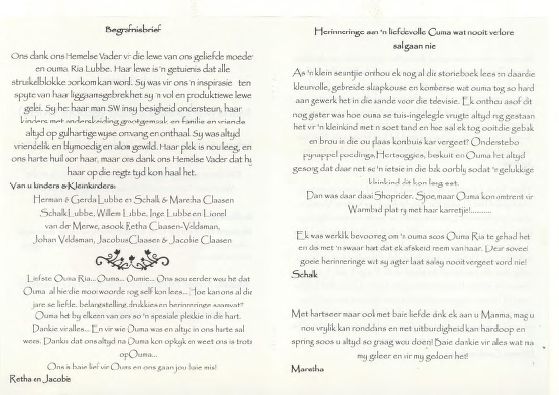 Begrafnisbrief
Ons dank ons Hemelse Vader vir die lewe van ons geliefde moeder
en ouma Ria Lubbe. Haar lewe is 'n getuienis dat alle
struikelblokke oorkom kan word. Sy was vir ons 'n inspirasie ten
spyte van haar liggaamsgebrek het sy 'n vol en produktiewe lewe
gelei. Sy het haar man SW in sy besigheid ondersteun, haar
kinders met onderskeiding grootgemaak en familie en vriende
altyd op gulhartige wyse ontvang en onthaal. Sy was altyd
vriendelik en blymoedig en alom gewild. Haar plek is nou leeg, en
ons harte huil oor haar, maar ons dank ons Hemelse Vader dat hy
haar op die regte tyd kom haal het.
Van u kinders & Kleinkinders:
Herman & Gerda Lubbe en Schalk & Maretha Claasen
Schalk Lubbe, Willem Lubbe, Inge Lubbe en Lionel
van der Merwe, asook Retha Claasen-Veldsman,
Johan Veldsman, Jacobus Claasen & Jacobie Claasen
Liefste Ouma Ria... Oums... Oumie... Ons sou eerder wou hê dat
Ouma al hierdie mooi woorde nog self kon lees... Hoe kan ons al die
jare se liefde, belangstelling, drukkies en herinneringe saamvat?
Ouma het by elkeen van ons so 'n spesiale plekkie in die hart.
Dankie vir alles... En vir wie Ouma was en altyd in ons harte sal
wees. Dankie dat ons altyd na Ouma kon opkyk en weet ons is trots
op Ouma...
Ons is baie lief vir Oums en ons gaan jou baie mis!
Retha en Jacobie
Herinneringe aan 'n liefdevolle Ouma wat nooit verlore
sal gaan nie
As 'n klein seuntjie onthou ek nog al dir storieboek lees in daardie
kleurvolle, gebreide slaapkouse en komberse wat ouma tog so hard
aan gewerk het in die aande voor die televisie. Ek onthou asof dit
nog gister was hoe ouma se tuis-ingelegde vrugte altyd reg gestaan
het vir 'n kleinkind met n soet tand en hoe sal ek tog ooit die gebak
en brou in die ou plaas kombuis kan vergeet? Onderstebo
pynappel poedings, Hertsoggies, beskuit en Ouma het altyd
gesorg dat daar net so 'n ietsie in die blik oorbly sodat 'n gelukkige
kleinkind dit kon leeg eet.
Dan was daar daai Shoprider. Sjoe, maar Ouma kon omtrent vir
Warmbad plat ry met haar karretjie!...........
Ek was werklik bevooreg om 'n ouma soos Ouma Ria te gehad het
en dis met 'n swaar hart dat ek afskeid neem van haar. Deur soveel
goeie herinneringe wat sy agter laat sal sy nooit vergeet word nie!
Schalk
Met hartseer maar ook met baie liefde dink ek aan u Mamma, mag u
nou vrylik kan ronddans en met uitbundigheid kan hardloop en
spring soos u altyd so graag wou doen! Baie dankie vir alles wat na
my geleer en vir my gedoen het!
Maretha